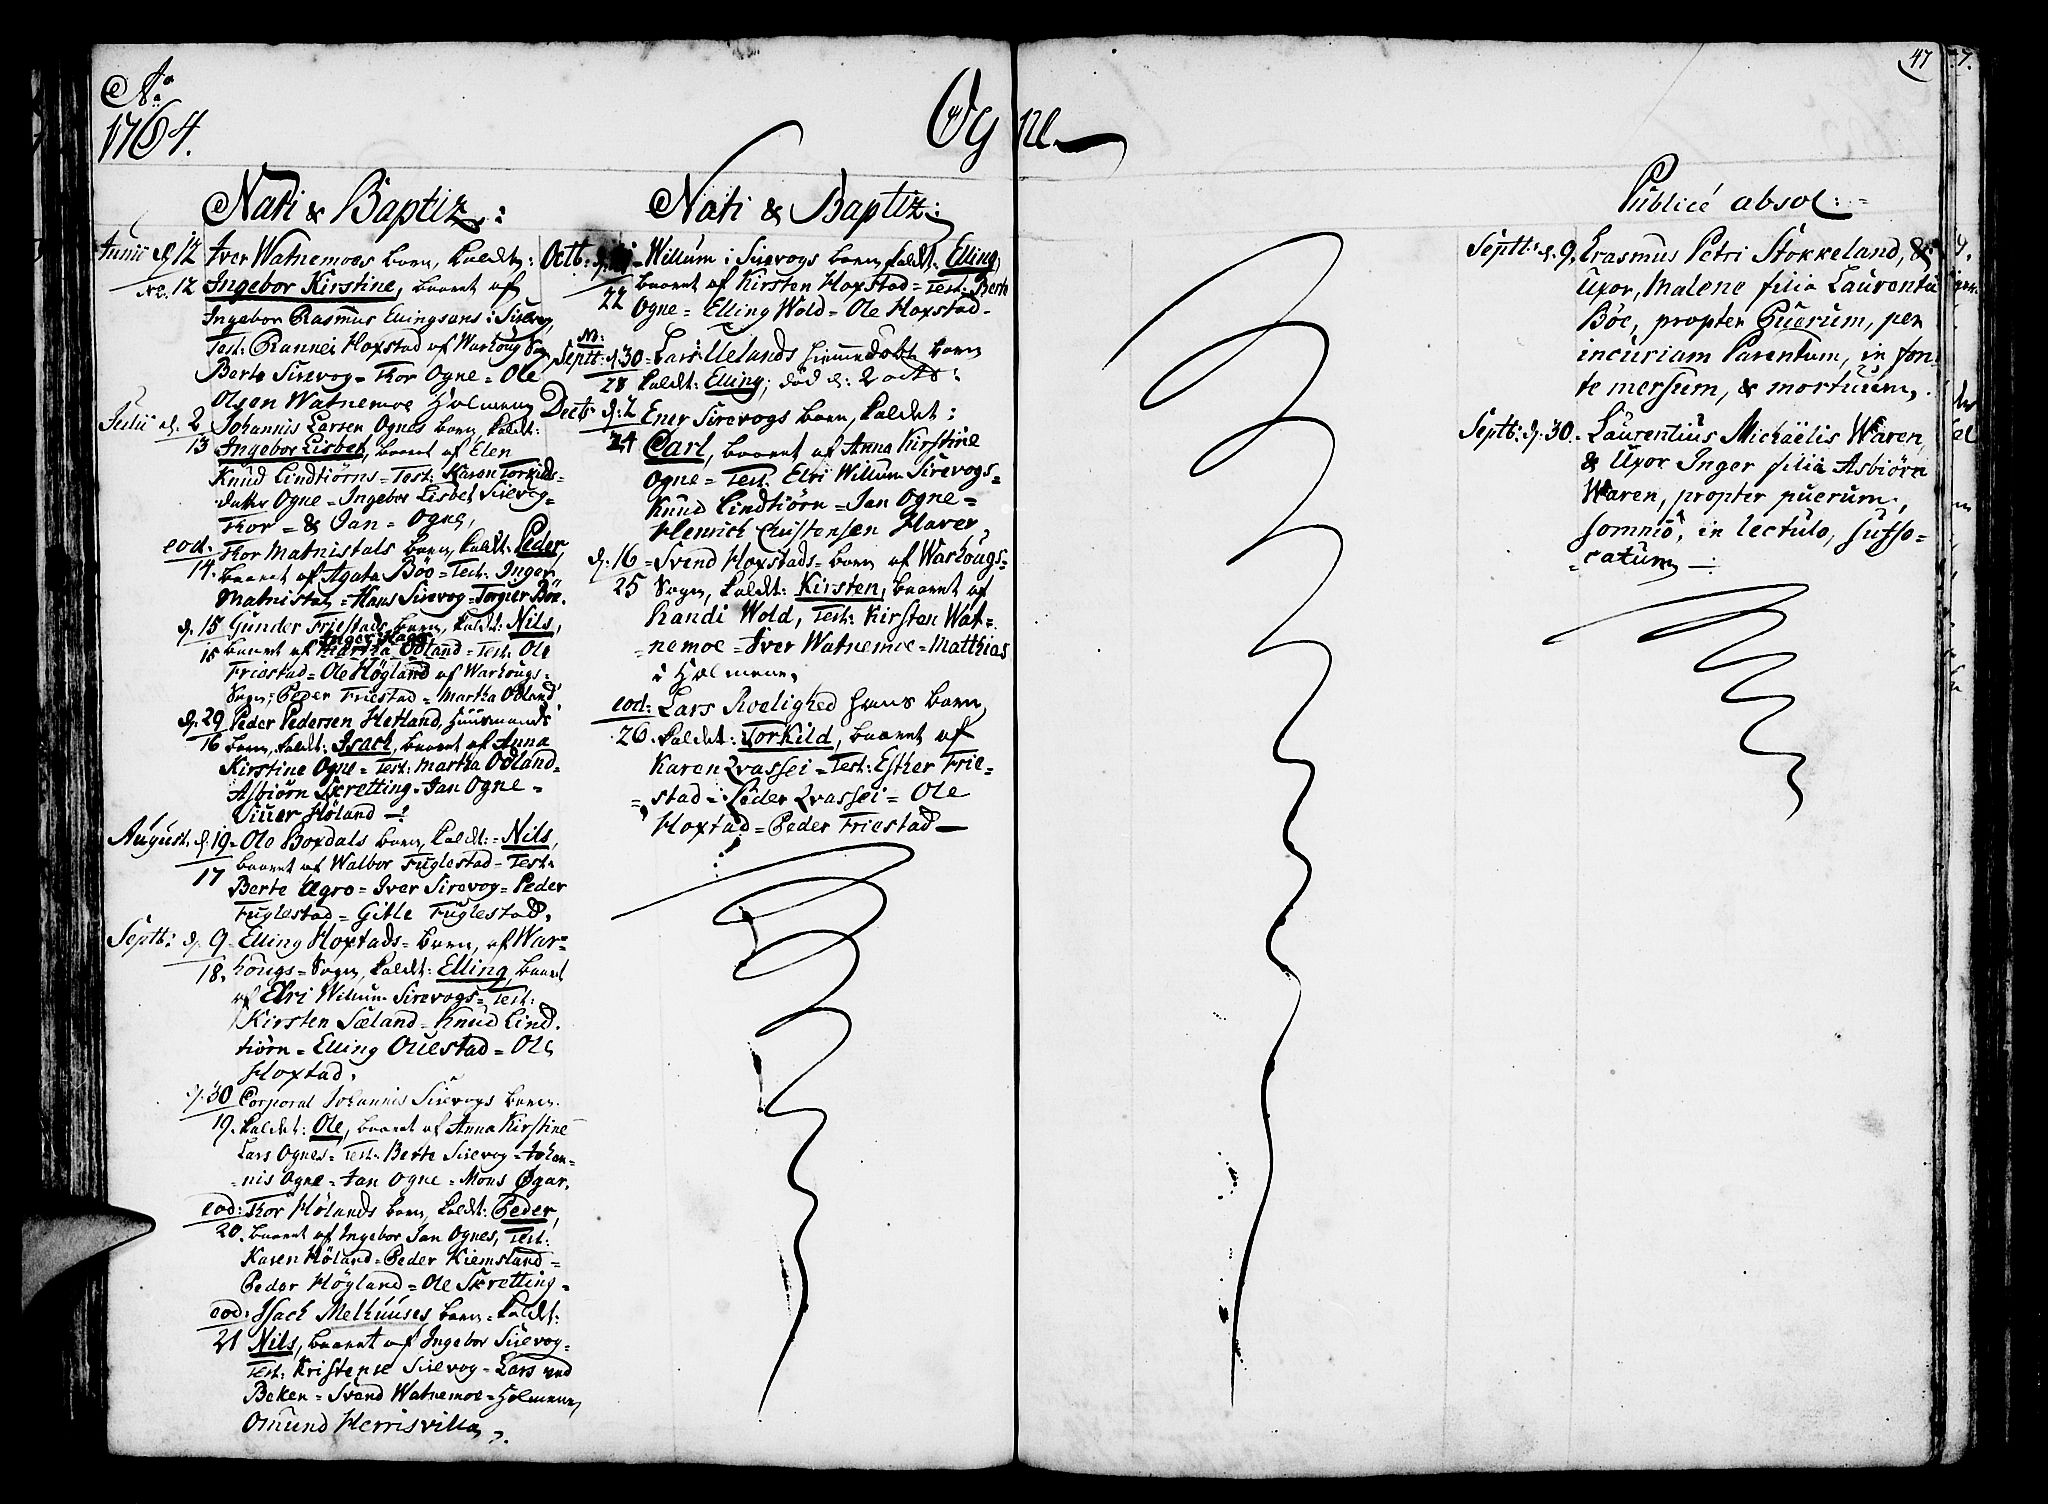 Aº
1764.
Ogne
47
Nati & Baptiz:
Junii d. 12 Iver Watnemoes barn, kaldt:
No. 12 Ingebor Kirstine, baaret af
Ingebor Rasmus Ellingsens i Sirevog,
Test: Rannei Hoxstad af Warhougs Sogn,
Berte Sirevog = Thor Ogne = Ole
Olsen Watnemoe Holmen,
Julii d. 2 Johannis Larsen Ognes barn, kaldt:
13 Ingebor Lisbet, baaret af Elen
Knud Lindtiörns = Test: Karen Torkilds-
datter Ogne = Ingebor Lisbet Sirevog =
Thor = & Jan = Ogne,
eod. Thor Matnistals barn, kaldt: Peder,
14. baaret af Agata Böe = Test: Inger
Matnistal = Hans Sirevog = Torgier Böe.
d. 15 Gunder Friestads barn, kaldt: Nils,
Inger Haar,
15 baaret af Martha Odland = Test: Ole
Friestad = Ole Högland af Warhougs =
Sogn; Peder Friestad = Martha Odland
d. 29 Peder Pedersen Hetland, Huusmands
16 barn, kaldt: Isach, baaret af Anna
Kirstine Ogne = Test: Martha Odland =
Asbiörn Skretting = Jan Ogne =
Siuer Höland
August. d. 19 = Ole Boxdals barn, kaldt: = Nils,
17 baaret af Walbor Fuglestad = Test:
Berte Ugro = Iver Sirevog = Peder
Fuglestad = Gitle Fuglestad,
Septb: d. 9 = Elling Hoxtads = barn, af War=
18. hougs = Sogn, kaldt: Elling, baaret
af Elri Willum Sirevogs = Test:
Kirsten Sæland = Knud Lind.
tiörn = Elling Ouestad = Ole
Hoxtad.
d. 30 Corporal Johannis Sirevogs barn
19. kaldet: Ole, baaret af Anna Kirstine
Lars Ognes = Test: Berte Sirevog = Johan=
=nis Ogne = Jan Ogne = Mons Øgar.
eod: Thor Hölands barn, kaldt: Peder,
20. baaret af Ingebor Jan Ognes, Test:
Karen Höland = Peder Kiemsland =
Peder Högland = Ole Skretting =
eod: Isach Melhuuses barn = kaldt:
21 Nils, baaret af Ingebor Sirevog =
Test: Kristense Sirevog = Lars ved
Beken = Svend Watnemoe = Holmen,
Omund Herrisvilla,
Nati & Baptiz:
Octb: = Willum i Sirevogs barn, kaldt: Elling,
22 baaret af Kirsten Hoxstad = Test: Berte
Ogne = Elling Wold = Ole Hoxstad.
No:
Septb: d. 30 = Lars Uelands hiemedøbt barn
28 kaldt: Elling; død d: 2 octb:
Decb: d. 2 Ener Sirevogs barn, kaldet:
24 Carl, baaret af Anna Kirstine
Ogne = Test. Elri Willum Sirevogs =
Knud Lindtiörn = Jan Ogne =
Henrich Christensen Haver,
d. 16 = Svend Hoxstads = barn af Warhougs =
25 Sogn, kaldt: Kirsten, baaret af
Randi Wold, Test: Kirsten Wat=
=nemoe = Iver Watnemoe = Matthias
i Holmen,
eod: Lars Roelighed hans barn
26. kaldet: Torkild, baaret af
Karen Qvassei = Test: Esther Frie=
=stad = Peder Qvassei = Ole
Hoxtad = Peder Friestad
Publicè absol:
Septb: d. 9. Erasmus Petri Stokkeland, &
Uxor, Malene filia Laurentii
Böe, propter Puerum, per
incuriam Parentum, in fon=
te mersum, & mortuum.
Septb: d. 30. Laurentius Michäelis Waren,
& Uxor Inger filia Asbiörn
Waren, propter puerum,
somnio, in lectulo, suffo=
=catum